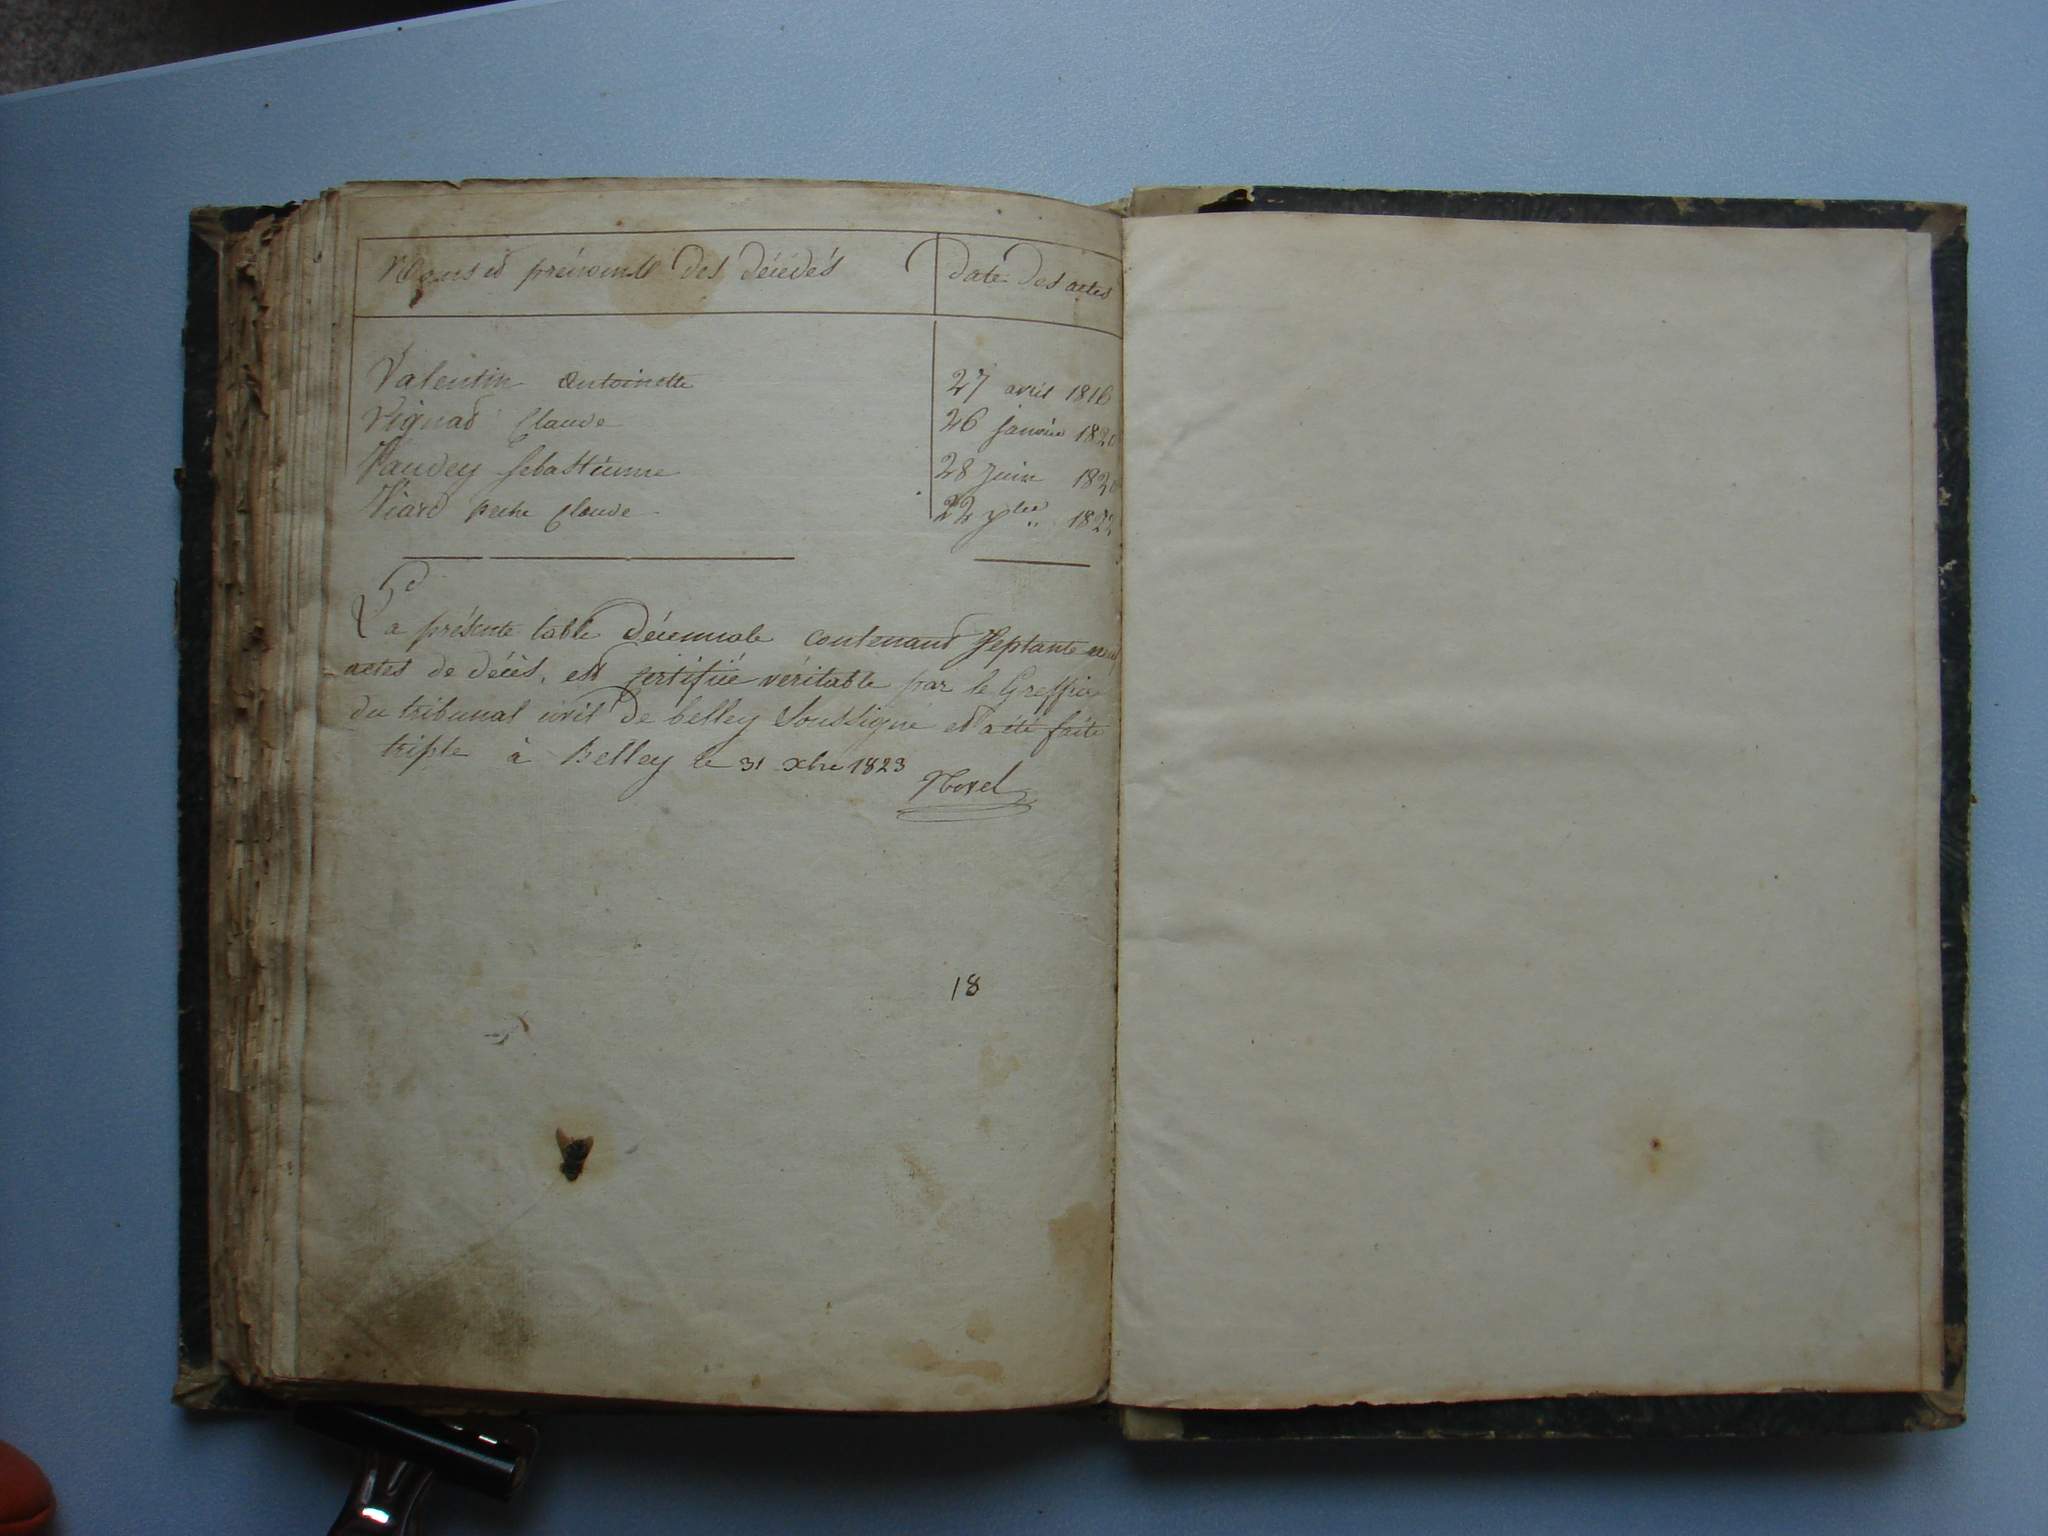 Noms et prénoms des décédés
Date des actes
Valentin Antoinette 27 avril 1816
Vignad Claude 26 janvier 1820
Vaudey Sebastienne 28 Juin 1820
Viard Claude 22 7bre 1822
La présente table décennale contenant septante
actes de décès, est certifiée véritable par le Greffier
du tribunal civil de belley Soussigné et a été faite
triple à Belley le 31 xbre 1823
18